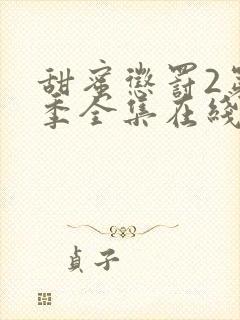 甜蜜懲罸2第
季全集在綫
貞子